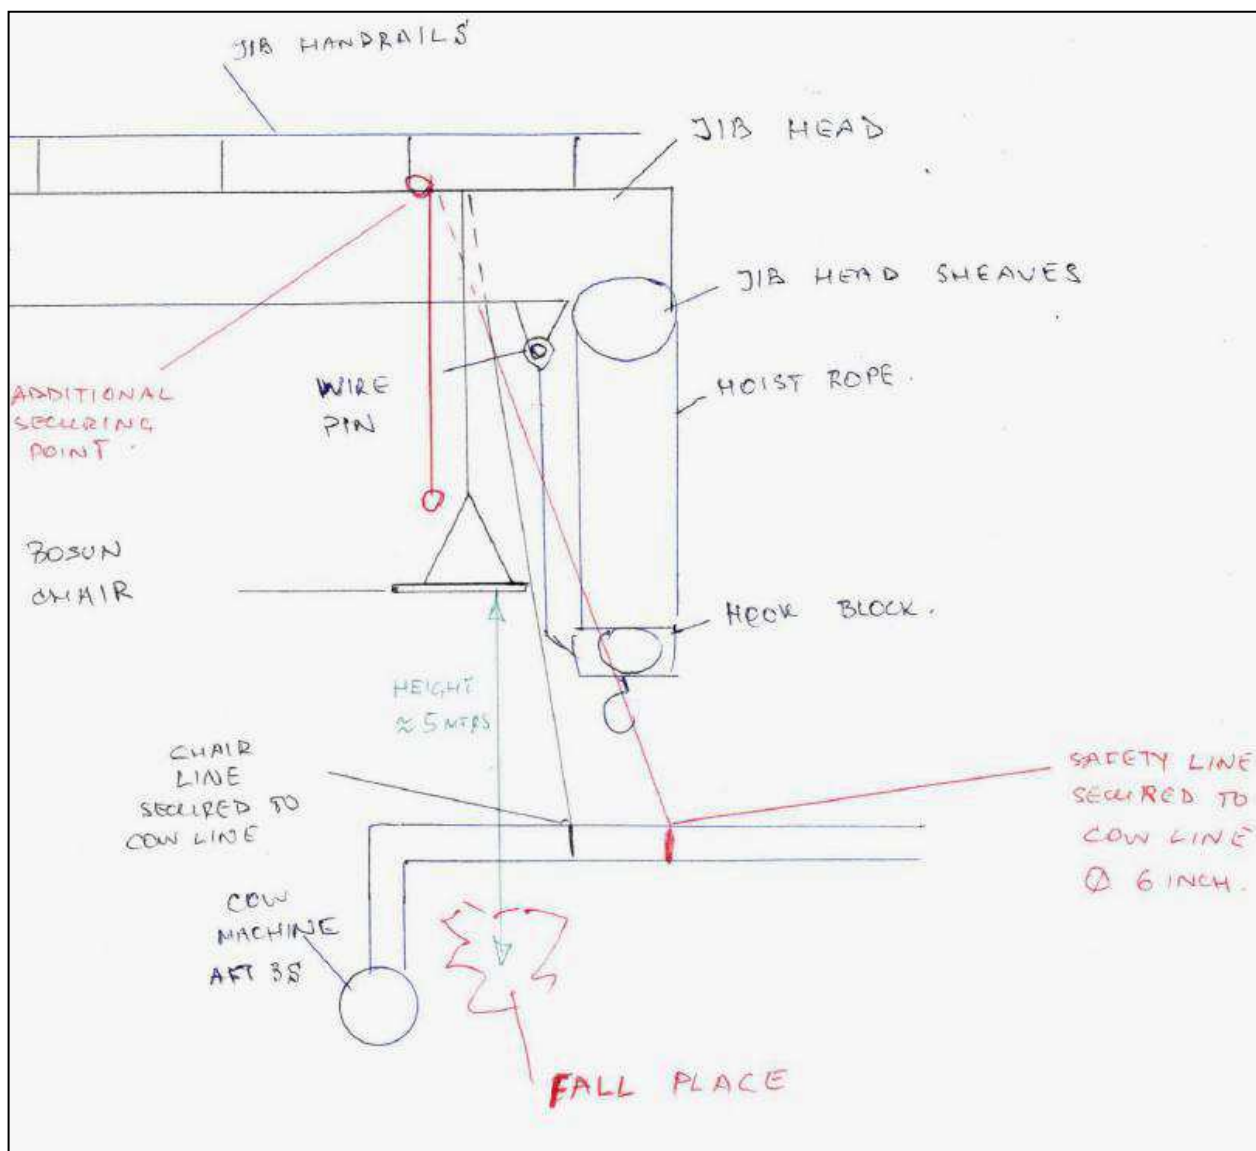 JIB HANDRAILS
JIB HEAD
JIB HEAD SHEAVES
HOIST ROPE.
ADDITIONAL
SECURING
POINT.
WIRE
PIN
BOSUN
CHAIR
HOOK BLOCK.
HEIGHT
≈ 5 MTRS
CHAIR
LINE
SECURED TO
COW LINE
SAFETY LINE
SECURED TO
COW LINE
Ø 6 INCH.
COW
MACHINE
AFT 3S
FALL PLACE